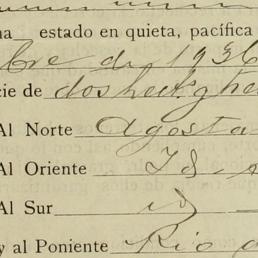 na estado en quieta, pacífica
bre de 1936
cie de dos hect.s
Al Norte Agosta
Al Oriente Id
Al Sur id
y al Poniente Rio